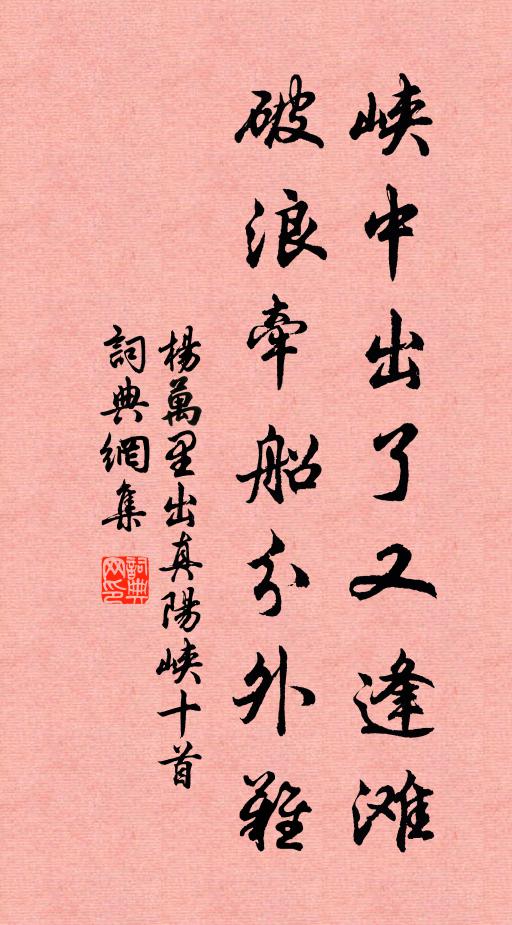 峡中出了又逢滩
破浪牵船分外難
楊萬里出真陽峡十首
詞典網集
詞典网印